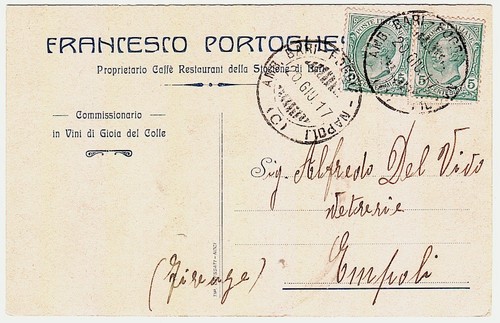 FRANCESCO PORTOGHES
Proprietario Caffè Restaurant della Stazione di Bari
Commissionario
in Vini di Gioia del Colle
AMB. BARI-FOGGIA-NAPOLI
20 GIU. 17
(C)
AMB. BARI-FOGG
20 GIU
5
5
Sig. Alfredo Del Vivo
Vetrerie
Empoli
(Firenze)